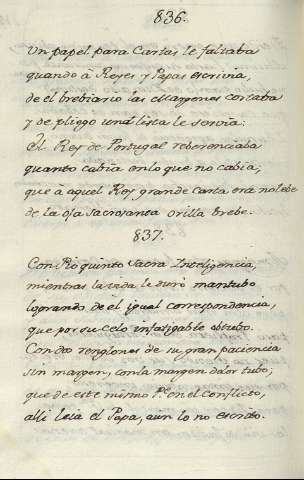 836.
Un papel para Cartas le faltaba
quando à Reyes y Papas escrivia,
de el brebiario las margenes cortaba
y de pliego una lista le servia:
El Rey de Portugal reberenciaba
quanto cabia en lo que no cabia;
que à aquel Rey grande carta era no lebe
de la oja sacrosanta orilla brebe.
837.
Con Pio quinto Sacra Inteligencia,
mientras la vida le durò mantubo
logrando de el igual correspondencia,
que por su celo infatigable obtubo.
Con dos renglones de su gran paciencia
sin margen, con la margen dalor tubo;
que de este mismo Pe. en el conflicto,
alli leia el Papa, aun lo no escrito.